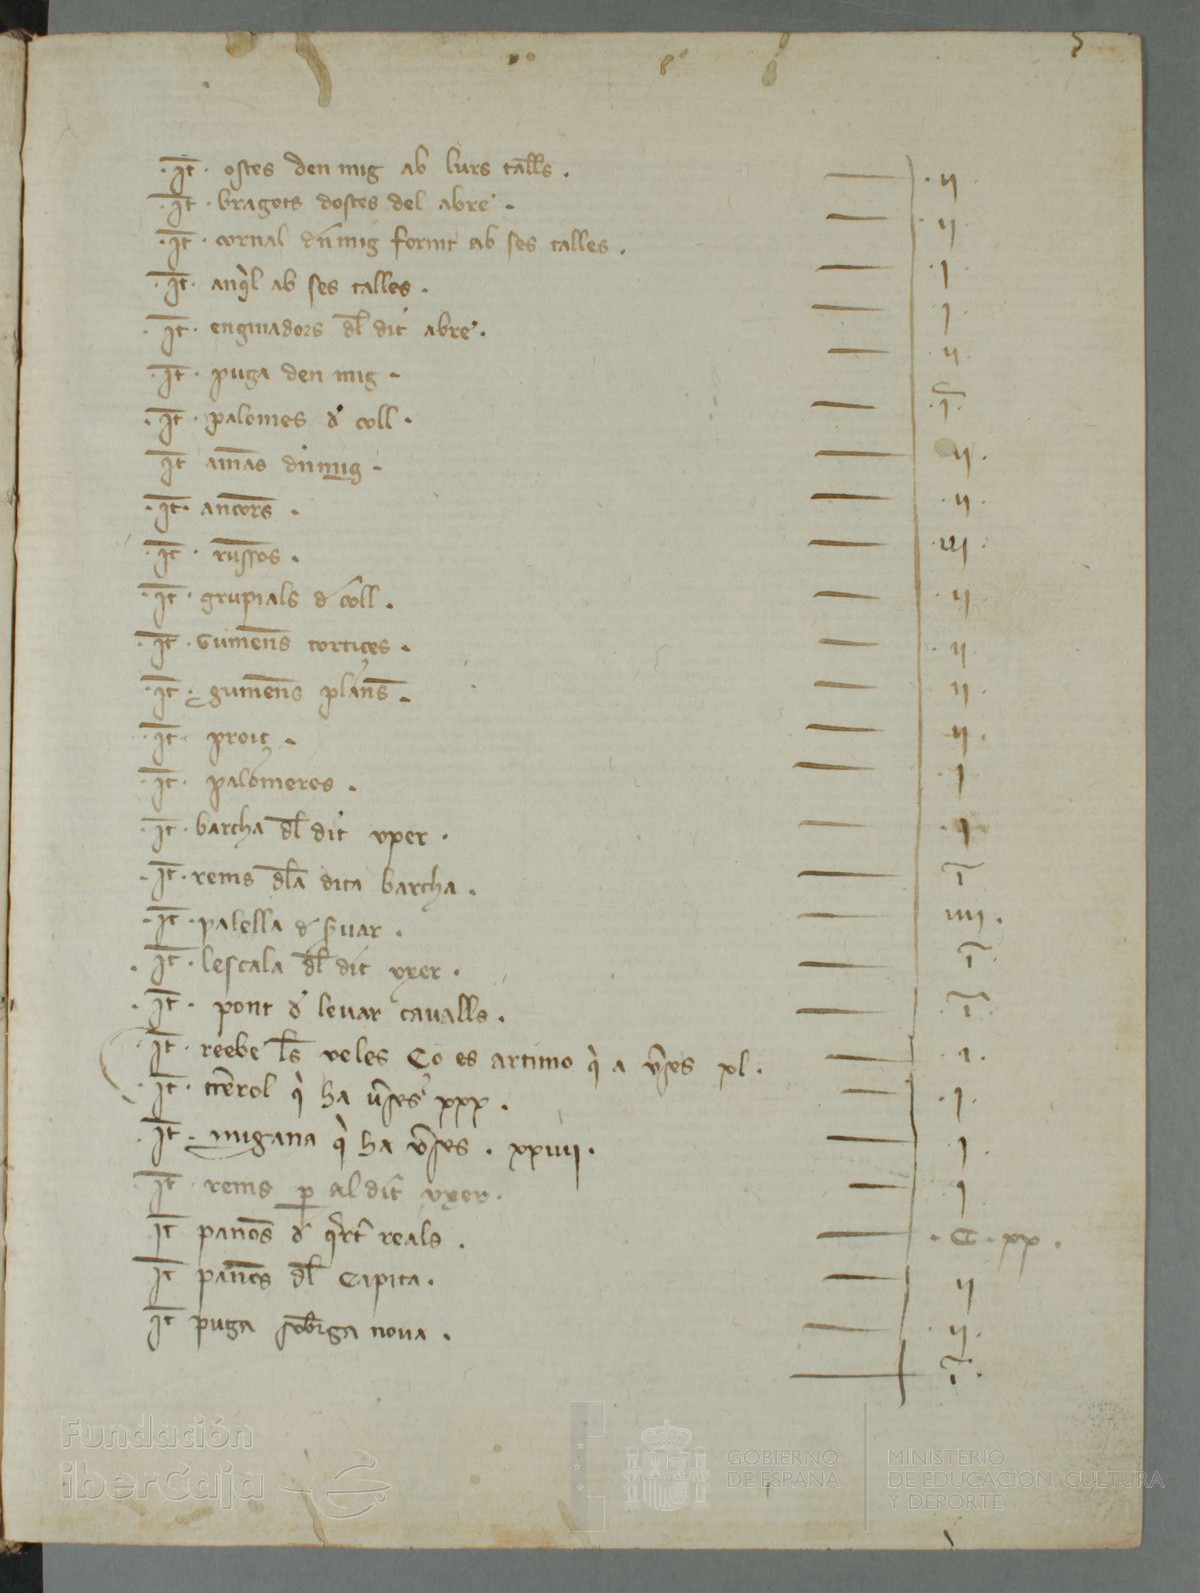 ·It· ostes den mig ab lurs talls · — · ij
·It· bragots dostes del abre · — · ij
·It· cornal dn mig fornit ab ses talles · — · j
·It· anql ab ses talles · — j
·It· enginadors dl dit abre · — · ij ·
·It· puga den mig — · j ·
·It· palomes d coll · — ij ·
It amas dn mig — · ij ·
·It· ancors · — · iij ·
·It· russos · — · ij
·It· grupials d coll · — · ij
·It· Gumens tortices · — ij ·
·It· gumens plans · — ij ·
·It· proit — · j
·It· palomeres · — · j
·It· barcha dl dit uxer · — j
·It· rems dla dita barcha · — iiij ·
·It· palella d suar · — j ·
·It· lescala dl dit uxer · — · j ·
·It· pont d levar cavalls · — · j ·
·It· reebe ls veles Co es artimo q a vses xl · — · j ·
·It· terol q ha vses xxx · — j ·
·It· migana q ha vses · xxiiij · — j
·It· rems p al dit uxer · — · C · xx ·
It panos d qrt reals · — ij
It panos dl Capita · — · ij ·
It puga sobirga nova · — j ·
Fundación
iberCaja
GOBIERNO
DE ESPAÑA
MINISTERIO
DE EDUCACIÓN, CULTURA
Y DEPORTE